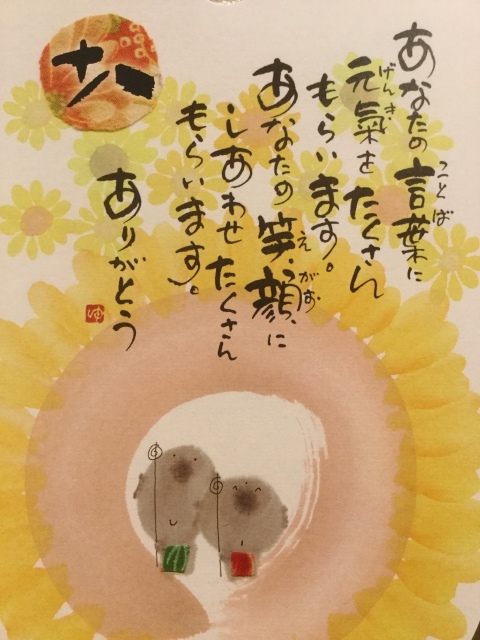 十八
あなたの言葉に
ことば
元氣をたくさん
げんき
もらいます。
あなたの笑顔に
えがお
しあわせたくさん
もらいます。
ありがとう
ゆ